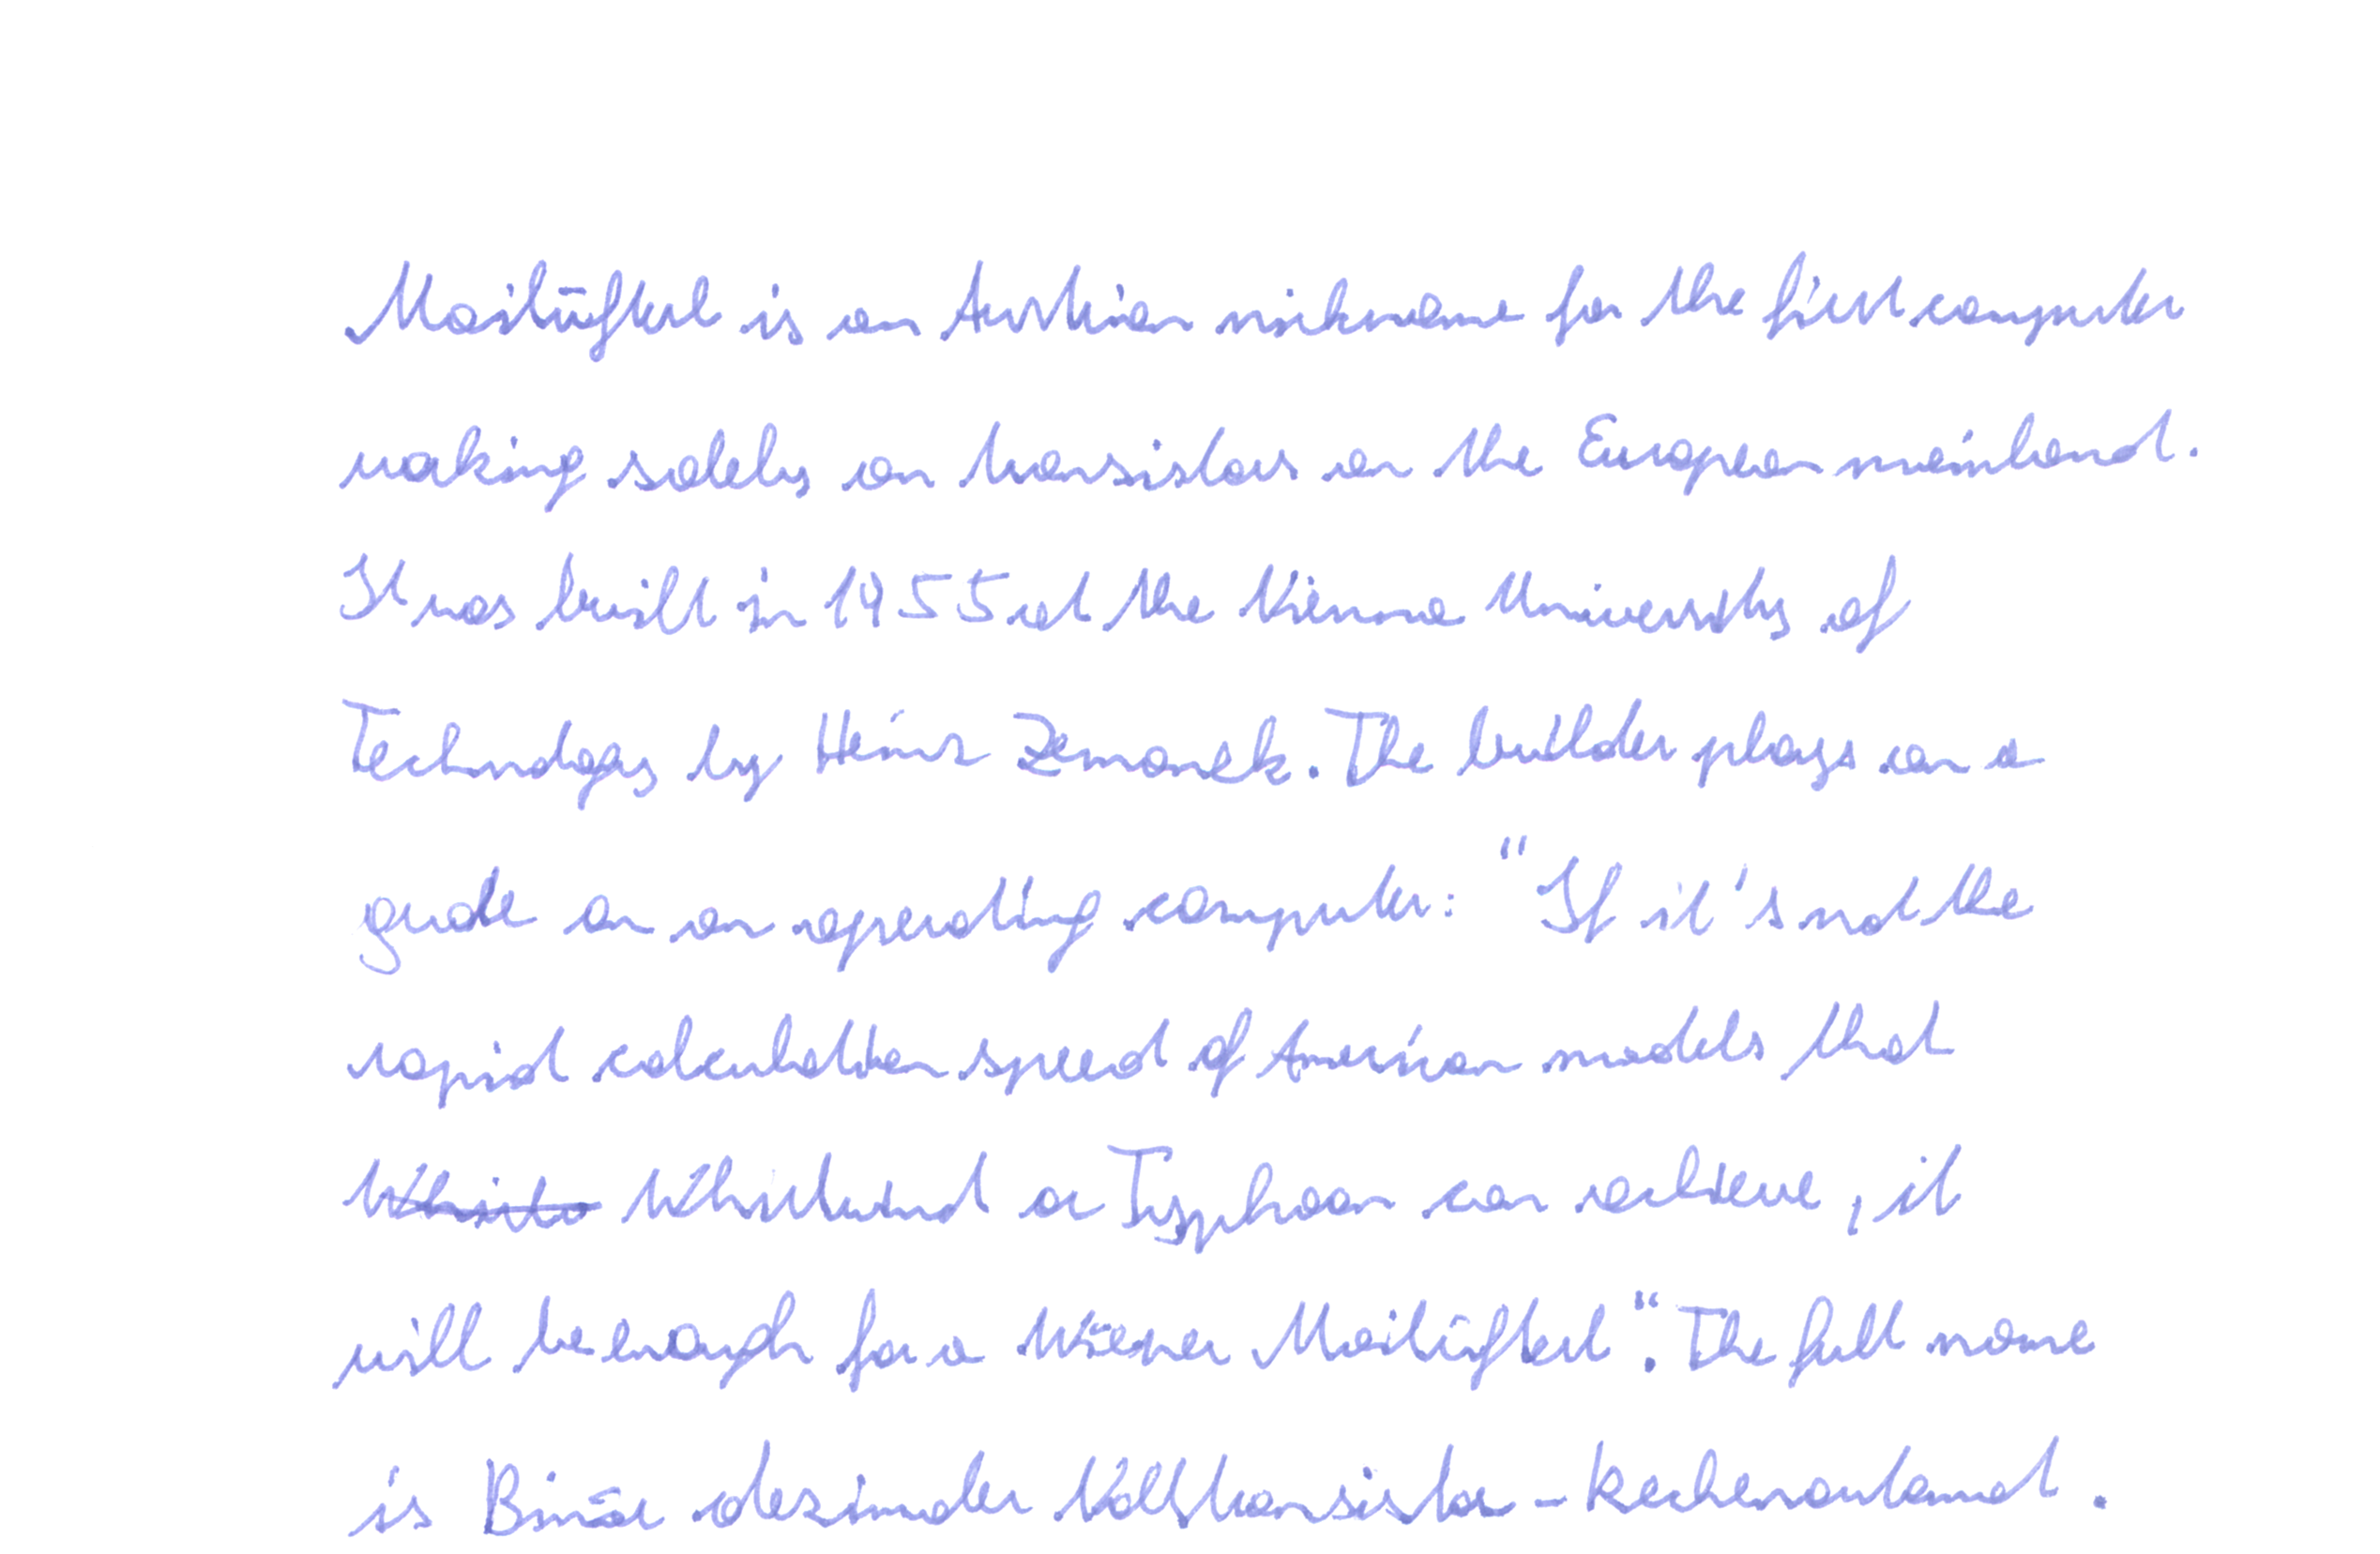 Mailüfterl is an Austrian nickname for the first computer
working solely on transistors on the European mainland.
It was built in 1955 at the Vienna University of
Technology by Heinz Zemanek. The builder plays on a
quote on an operating computer: "If it's not the
rapid calculation speed of American models that
Whirlwind or Typhoon can achieve, it
will be enough for a Wiener Mailüfterl". The full name
is Binär dezimaler Volltransistor-Rechenautomat.